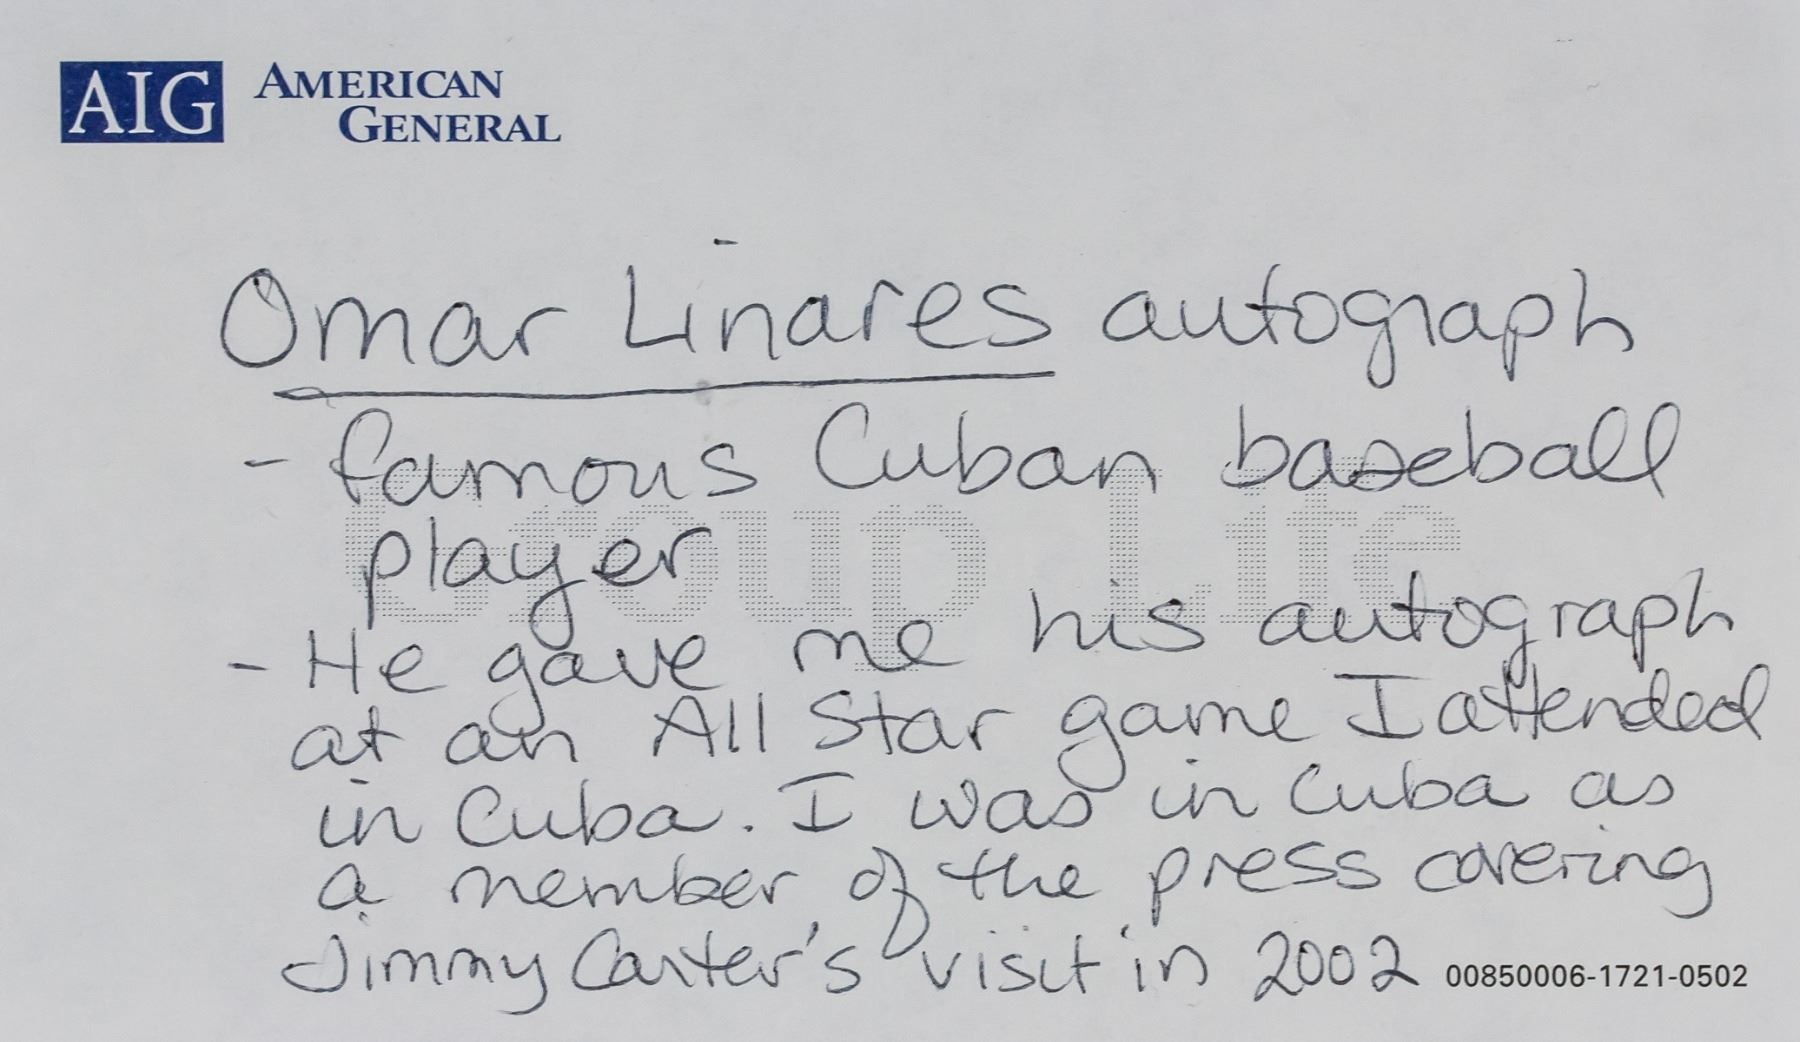 AIG AMERICAN
GENERAL
Omar Linares autograph
- famous Cuban baseball
player
Group Life
- He gave me his autograph
at an All Star game I attended
in Cuba. I was in Cuba as
a member of the press covering
Jimmy Carter's visit in 2002
00850006-1721-0502